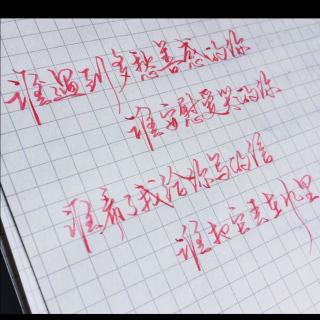 谁遇到多愁善感的你
谁安慰爱哭的你
谁看了我给你写的信
谁把它丢在风里